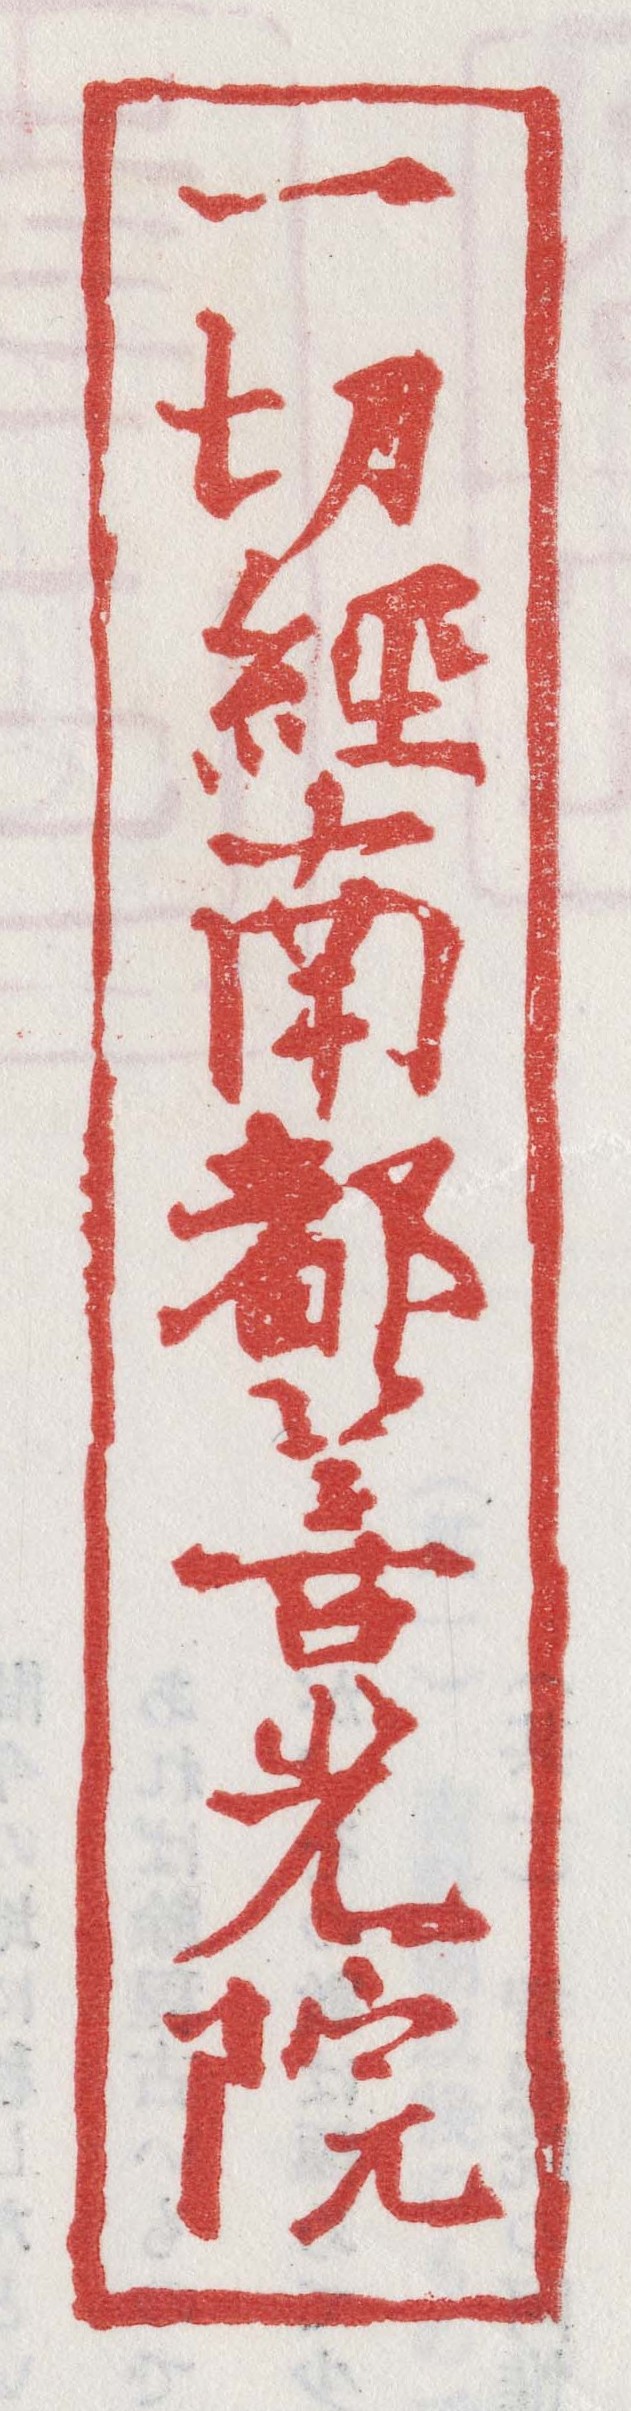 一切經南都善光院